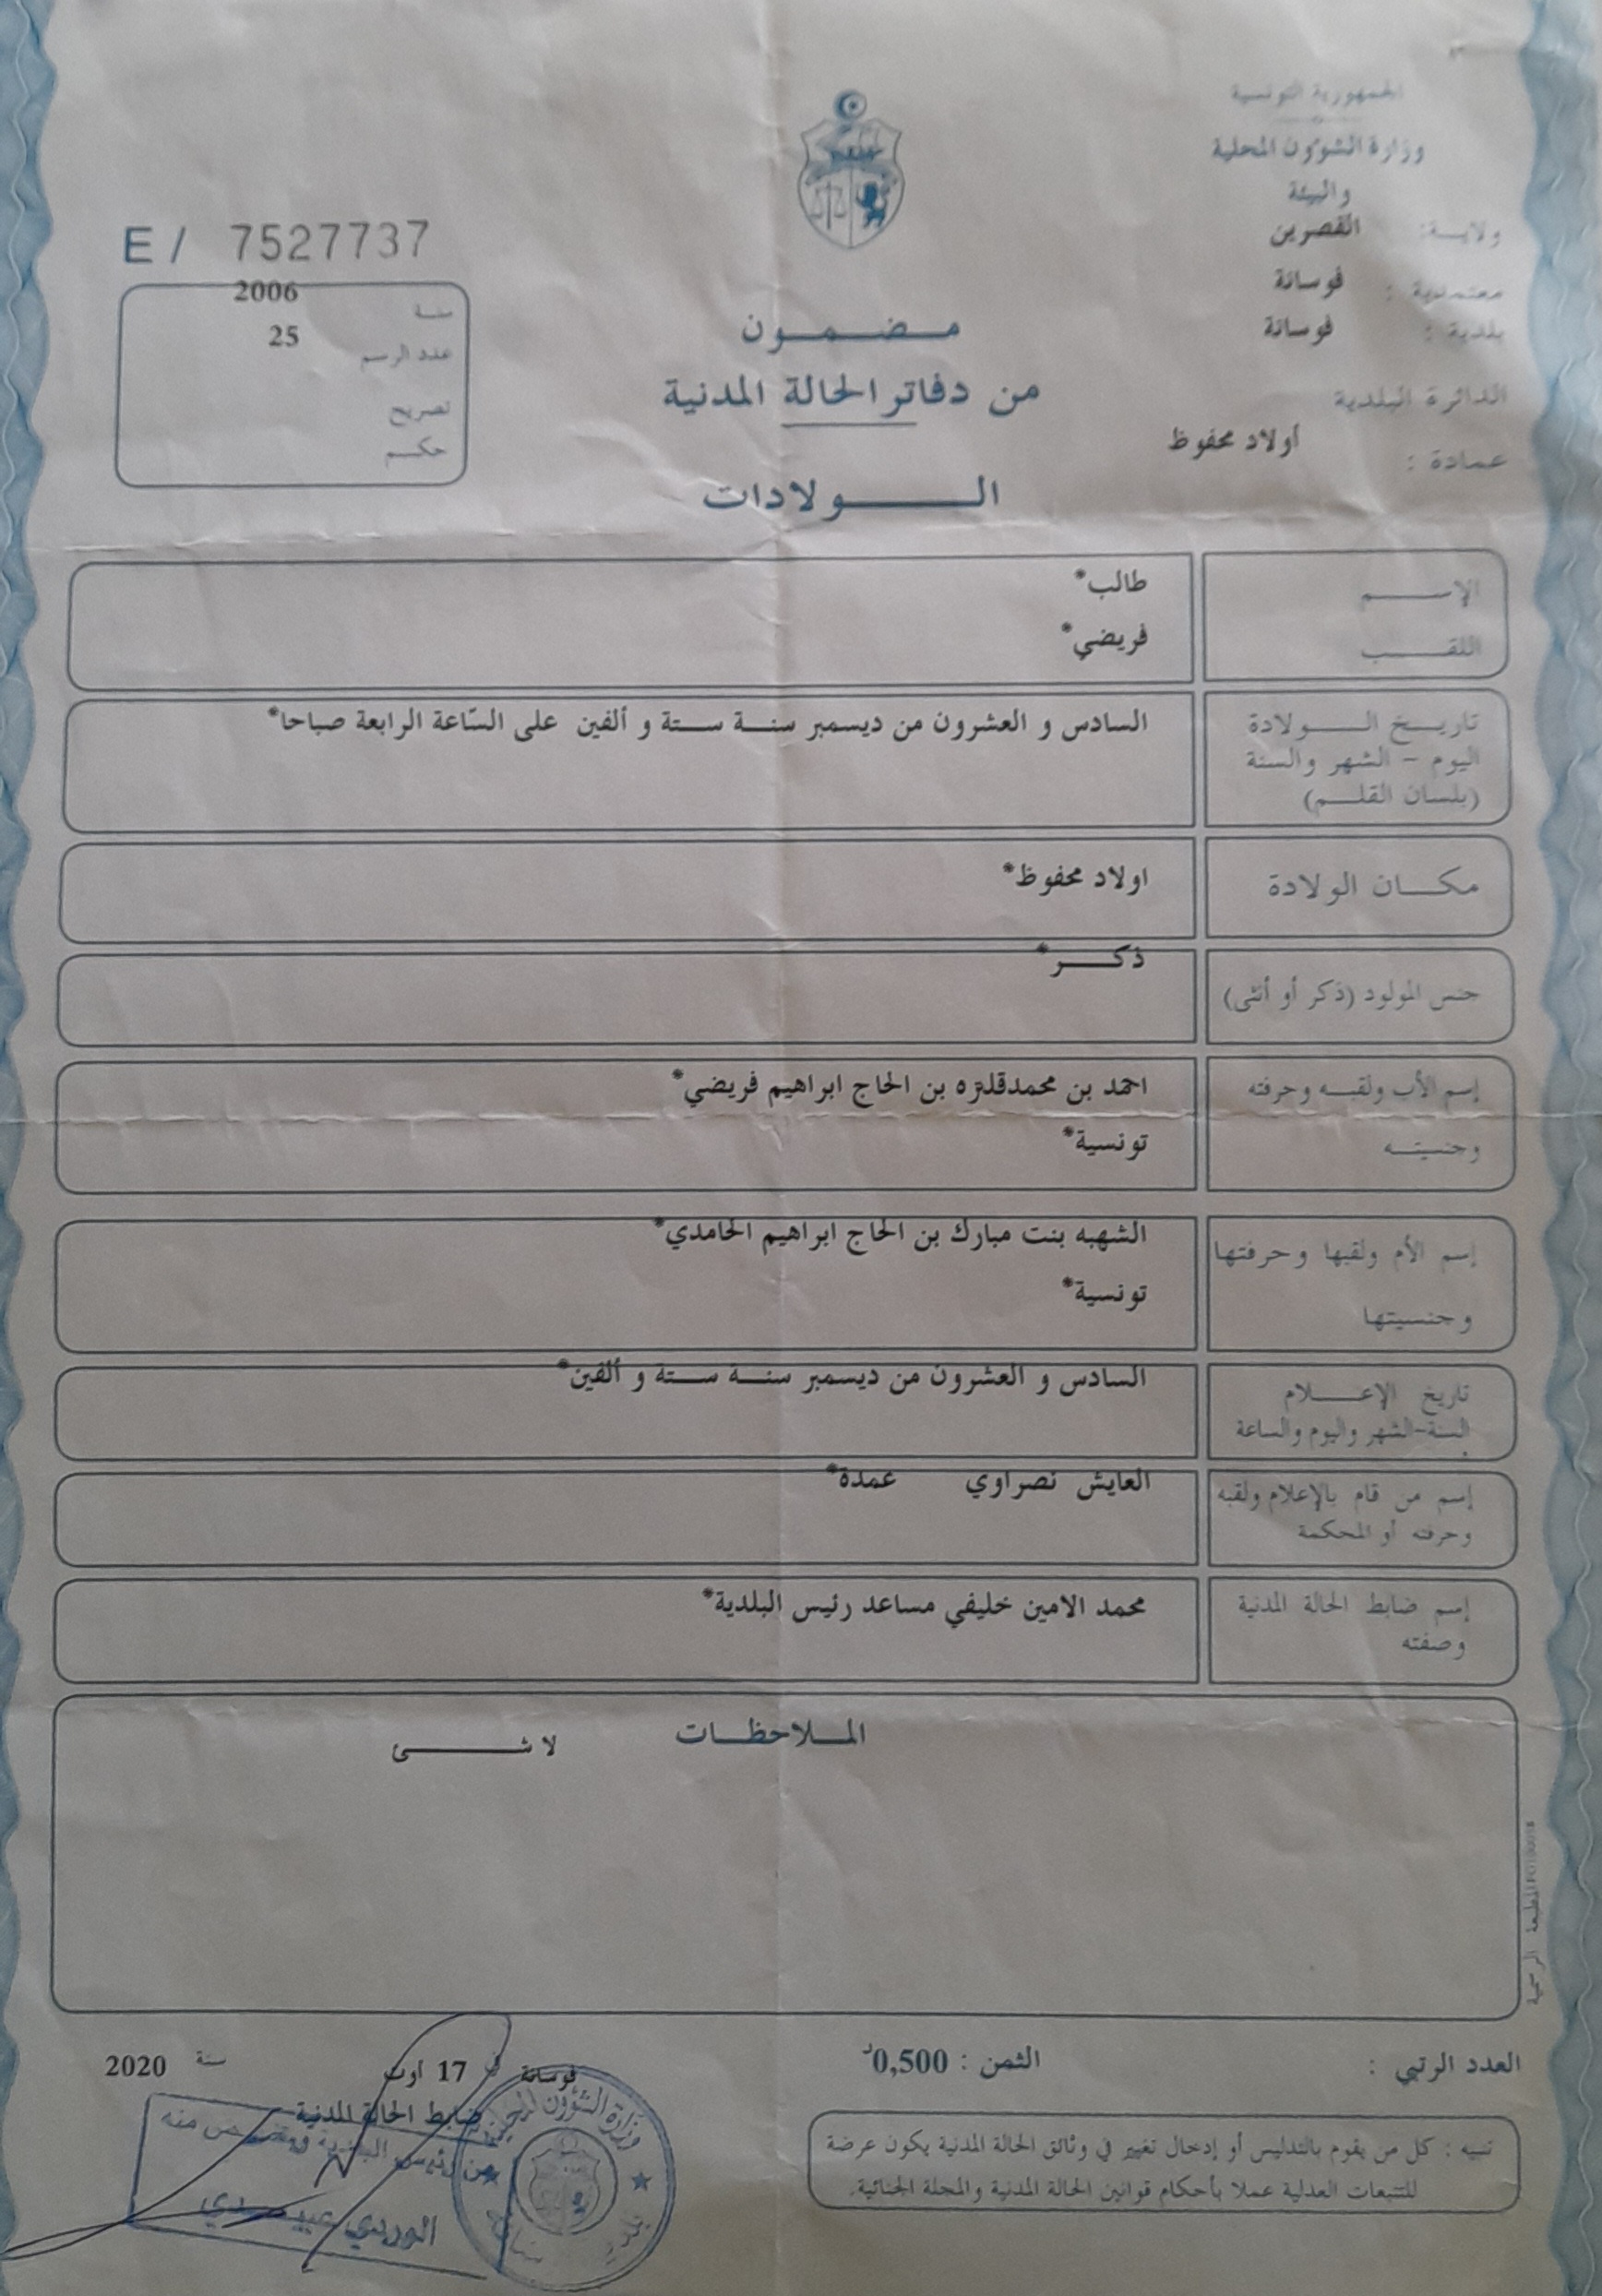 الجمهورية التونسية
وزارة الشؤون المحلية
والبيئة
ولاية: القصرين
معتمدية : فوسانة
بلدية : فوسانة
الدائرة البلدية
عمادة : أولاد محفوظ
E / 7527737
سنة 2006
عدد الرسم 25
تصريح
حكم
مضمون
من دفاتر الحالة المدنية
الولادات
الإسم طالب*
اللقب فريضي*
تاريخ الولادة السادس و العشرون من ديسمبر سنة ستة و ألفين على السّاعة الرابعة صباحا*
اليوم - الشهر والسنة
(بلسان القلم)
مكان الولادة اولاد محفوظ*
جنس المولود (ذكر أو أنثى) ذكر*
إسم الأب ولقبه وحرفته احمد بن محمدقلتزه بن الحاج ابراهيم فريضي*
وجنسيته تونسية*
إسم الأم ولقبها وحرفتها الشهبه بنت مبارك بن الحاج ابراهيم الحامدي*
وجنسيتها تونسية*
تاريخ الإعلام السادس و العشرون من ديسمبر سنة ستة و ألفين*
السنة-الشهر واليوم والساعة
إسم من قام بالإعلام ولقبه العايش نصراوي عمدة*
وحرفته أو المحكمة
إسم ضابط الحالة المدنية محمد الامين خليفي مساعد رئيس البلدية*
وصفته
الملاحظات
لا شئ
المطبعة الرسمية
العدد الرتبي :
الثمن : 0,500د
فوسانة في 17 اوت سنة 2020
ضابط الحالة المدنية
تنبيه : كل من يقوم بالتدليس أو إدخال تغيير في وثائق الحالة المدنية يكون عرضة
للتتبعات العدلية عملا بأحكام قوانين الحالة المدنية والمجلة الجنائية.
وزارة الشؤون المحلية